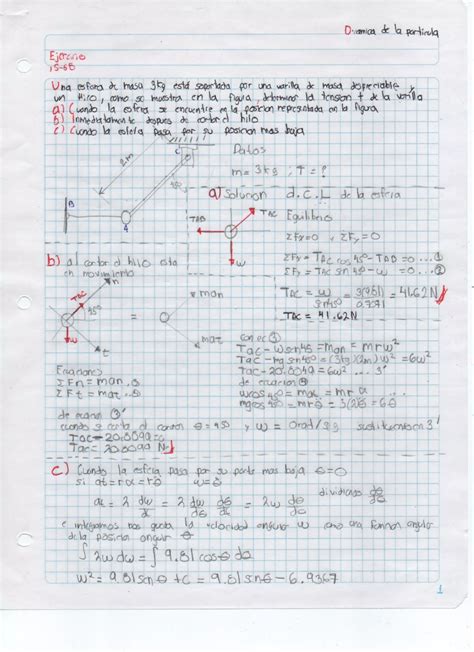 Dinamica de la particula
Ejercicio
15-68
Una esfera de masa 3kg está soportada por una varilla de masa despreciable y
un Hilo, como se muestra en la figura, determine la tension t de la varilla
a) Cuando la esfera se encuentre en la posicion representada en la figura
b) Inmediatamente despues de cortar el hilo
c) Cuando la esfera pasa por su posicion mas baja
2m
C
45°
B
A
Datos
m = 3kg ; T = ?
a) Solucion d.C.L de la esfera
TAB
TAC
W
Equilibrio
ΣFx=0 y ΣFy=0
ΣFx = TAC cos 45 - TAB = 0 ... 1
ΣFy = TAC sin 45 - W = 0 ... 2
TAC = W/sin45 = 3(9.81)/0.7071 = 41.62N
TAC = 41.62N
b) al cortar el hilo esta
en movimiento
n
TAC
45°
W
t
=
man
mat
Ecuaciones
ΣFn = man ... 3
ΣFt = mat ... 4
con ec 3
TAC - W sin45 = man = mrw²
TAC - mg sin45° = (3kg)(2m) w² = 6w²
TAC - 20.8099 = 6w² ... 3'
de ecuacion 4
w cos 45 = mat = mra
mg cos 45° = mrθ̈ = 3(2)θ̈ = 6θ̈
de ecuacion 3'
cuando se corta el cordon θ = 45° y w = 0 rad/sg sustituimos en 3'
TAC - 20.8099 = 0
TAC = 20.8099 N
c) Cuando la esfera pasa por su parte mas baja θ=0
dividiendo
e integramos nos queda la velocidad angular w como una funcion angular
de la posicion angular θ
∫ 2w dw = ∫ 9.81 cosθ dθ
w² = 9.81 sinθ + C = 9.81 sinθ - 6.9367
1